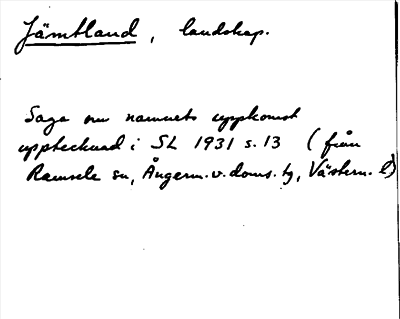 Jämtland, landskap.
Saga om namnets uppkomst
upptecknad i SL 1931 s. 13 (från
Ramsele sn, Ångerm. v. doms. tg, Västern. l)